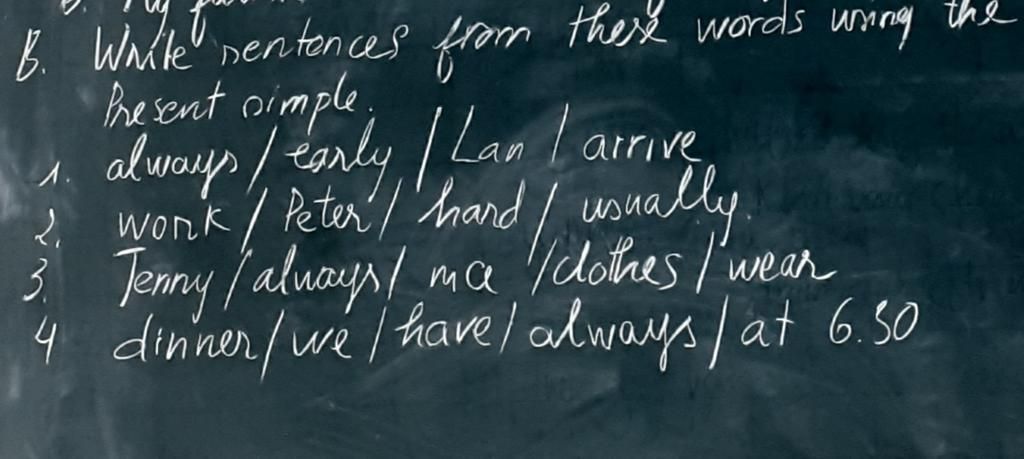 B. Write sentences from these words using the
Present simple.
1. always / early / Lan / arrive
2. work / Peter / hard / usually.
3. Jenny / always / / clothes / wear
4 dinner / we / have / always / at 6.30